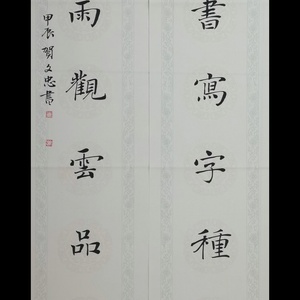 書寫字種
雨觀雲品
甲辰賀文忠書